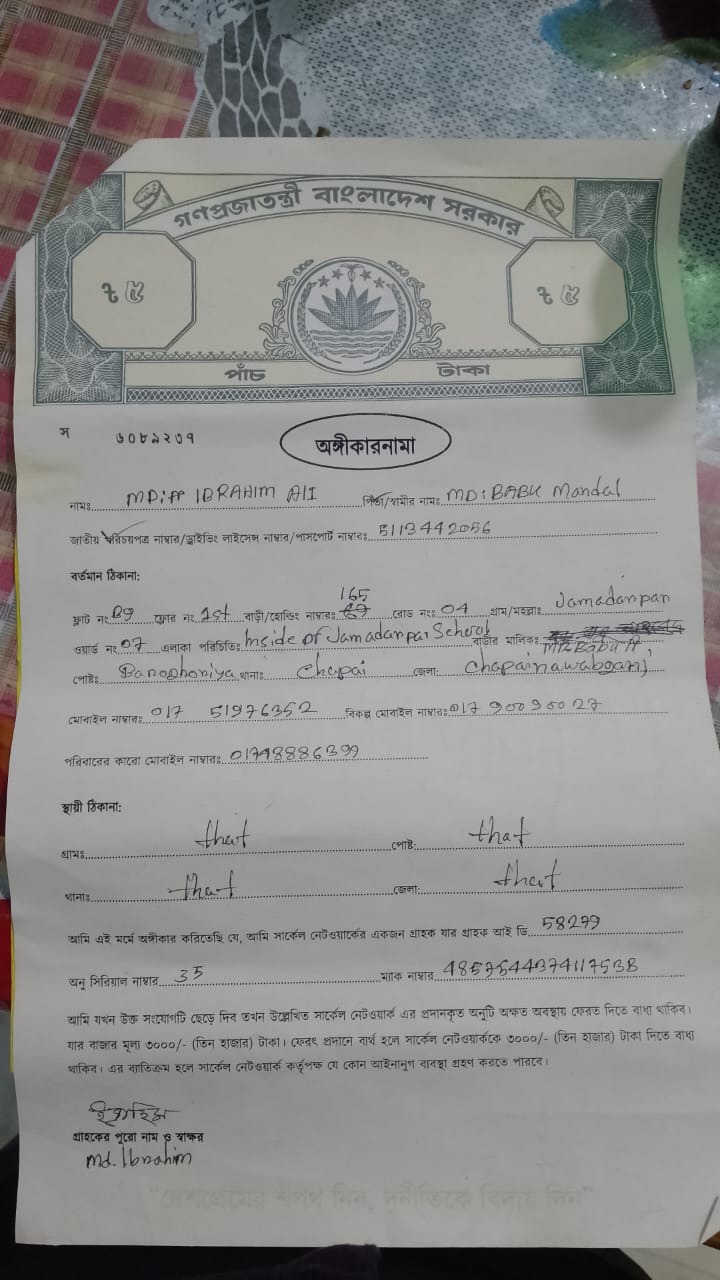 গণপ্রজাতন্ত্রী বাংলাদেশ সরকার
৳ ৫ ৳ ৫
পাঁচ টাকা
স ৬০৮৯২৩৭
অঙ্গীকারনামা
নামঃ MD: IBRAHIM ALI পিতা/স্বামীর নামঃ MD: BABU Mandal
জাতীয় পরিচয়পত্র নাম্বার/ড্রাইভিং লাইসেন্স নাম্বার/পাসপোর্ট নাম্বারঃ 5113442056
বর্তমান ঠিকানা:
ফ্লাট নং B9 ফ্লোর নং 1st বাড়ী/হোল্ডিং নাম্বারঃ 165 রোড নংঃ 04 গ্রাম/মহল্লাঃ Jamadarpar
ওয়ার্ড নং 07 এলাকা পরিচিতিঃ Inside of Jamadarpar School বাড়ীর মালিকঃ
পোষ্টঃ থানাঃ Chapai জেলা: Chapainawabganj
মোবাইল নাম্বারঃ 017 51976352 বিকল্প মোবাইল নাম্বারঃ 017 90090027
পরিবারের কারো মোবাইল নাম্বারঃ 01748886399
স্থায়ী ঠিকানা:
গ্রামঃ that পোষ্ট: that
থানাঃ that জেলা: that
আমি এই মর্মে অঙ্গীকার করিতেছি যে, আমি সার্কেল নেটওয়ার্কের একজন গ্রাহক যার গ্রাহক আই ডি 58279
অনু সিরিয়াল নাম্বার 35 ম্যাক নাম্বার 485754437411753B
আমি যখন উক্ত সংযোগটি ছেড়ে দিব তখন উল্লেখিত সার্কেল নেটওয়ার্ক এর প্রদানকৃত অনুটি অক্ষত অবস্থায় ফেরত দিতে বাধ্য থাকিব।
যার বাজার মূল্য ৩০০০/- (তিন হাজার) টাকা। ফেরৎ প্রদানে ব্যর্থ হলে সার্কেল নেটওয়ার্ককে ৩০০০/- (তিন হাজার) টাকা দিতে বাধ্য
থাকিব। এর ব্যতিক্রম হলে সার্কেল নেটওয়ার্ক কর্তৃপক্ষ যে কোন আইনানুগ ব্যবস্থা গ্রহণ করতে পারবে।
ইব্রাহিম
গ্রাহকের পুরো নাম ও স্বাক্ষর
Md. Ibrahim
"দেশপ্রেমের শপথ নিন, দুর্নীতিকে বিদায় দিন"